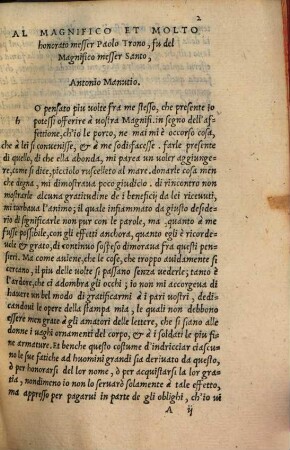 2
AL MAGNIFICO ET MOLTO
honorato messer Paolo Trono, fu del
Magnifico messer Santo,
Antonio Manutio.
O pensato piu volte fra me stesso, che presente io
h potessi offerire à uostra Magnifi. in segno dell'af-
fettione, ch'io le porto, ne mai mi è occorso cosa,
che à lei si conuenisse, & à me sodisfacesse. farle presente
di quello, di che ella abonda, mi parea un uoler aggiunge-
re, come si dice, picciolo ruscelletto al mare. donarle cosa men
che degna, mi dimostraua poco giudicio. di rincontro non
mostrarle alcuna gratitudine de i beneficij da lei riceuuti,
mi turbaua l'animo; il quale infiammato da giusto deside-
rio di significarle non pur con le parole, ma, quanto à me
fusse possibile, con gli effetti anchora, quanto egli è ricorde-
uole & grato, di continuo sospeso dimoraua fra questi pen-
sieri. Ma come auiene, che le cose, che troppo auidamente si
cercano, il piu delle uolte si passano senza uederle; tanto è
l'ardore, che ci adombra gli occhi; io non mi accorgeua di
hauere un bel modo di gratificarmi à i pari uostri, dedi-
candoui le opere della stampa mia, le quali non debbono
essere men grate à gli amatori delle lettere, che si siano alle
donne i uaghi ornamenti del corpo, & à i soldati le piu fi-
ne armature. Et benche questo costume d'indricciar ciascu-
no le sue fatiche ad huomini grandi sia deriuato da questo,
ò per honorarsi del lor nome, ò per acquistarsi la lor gra-
tia, nondimeno io non lo seruarò solamente à tale effetto,
ma appresso per pagarui in parte de gli oblighi, ch'io ui
A ij